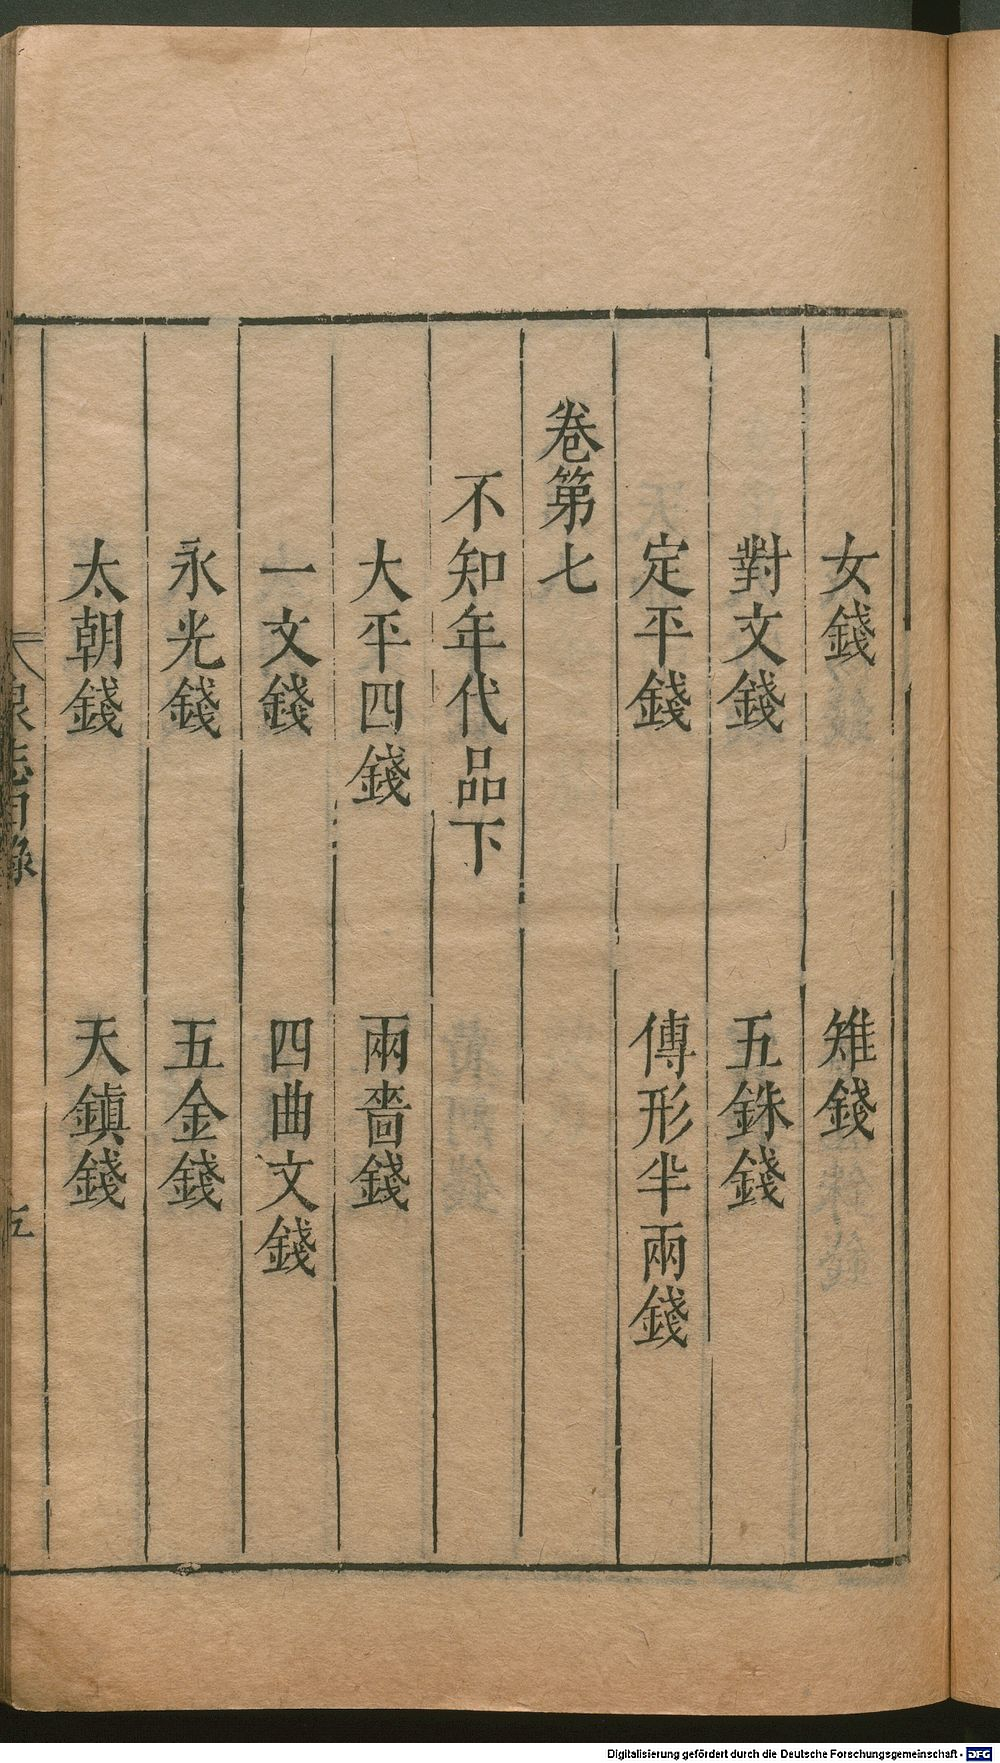 女錢　雉錢
對文錢　五銖錢
定平錢　傳形半兩錢
卷第七
不知年代品下
大平四錢　兩啚錢
一文錢　四曲文錢
永光錢　五金錢
太朝錢　天鎭錢
泉志目錄　五
Digitalisierung gefördert durch die Deutsche Forschungsgemeinschaft - DFG